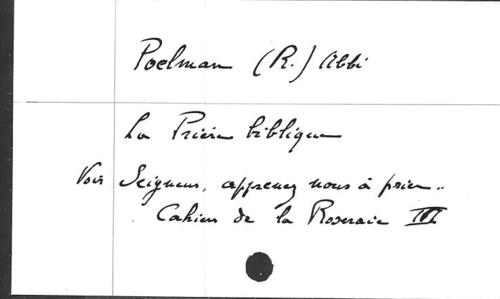 Poelman (R.) Abbé
La Prière biblique
Voir Seigneur, apprenez nous à prier..
Cahiers de la Roseraie III